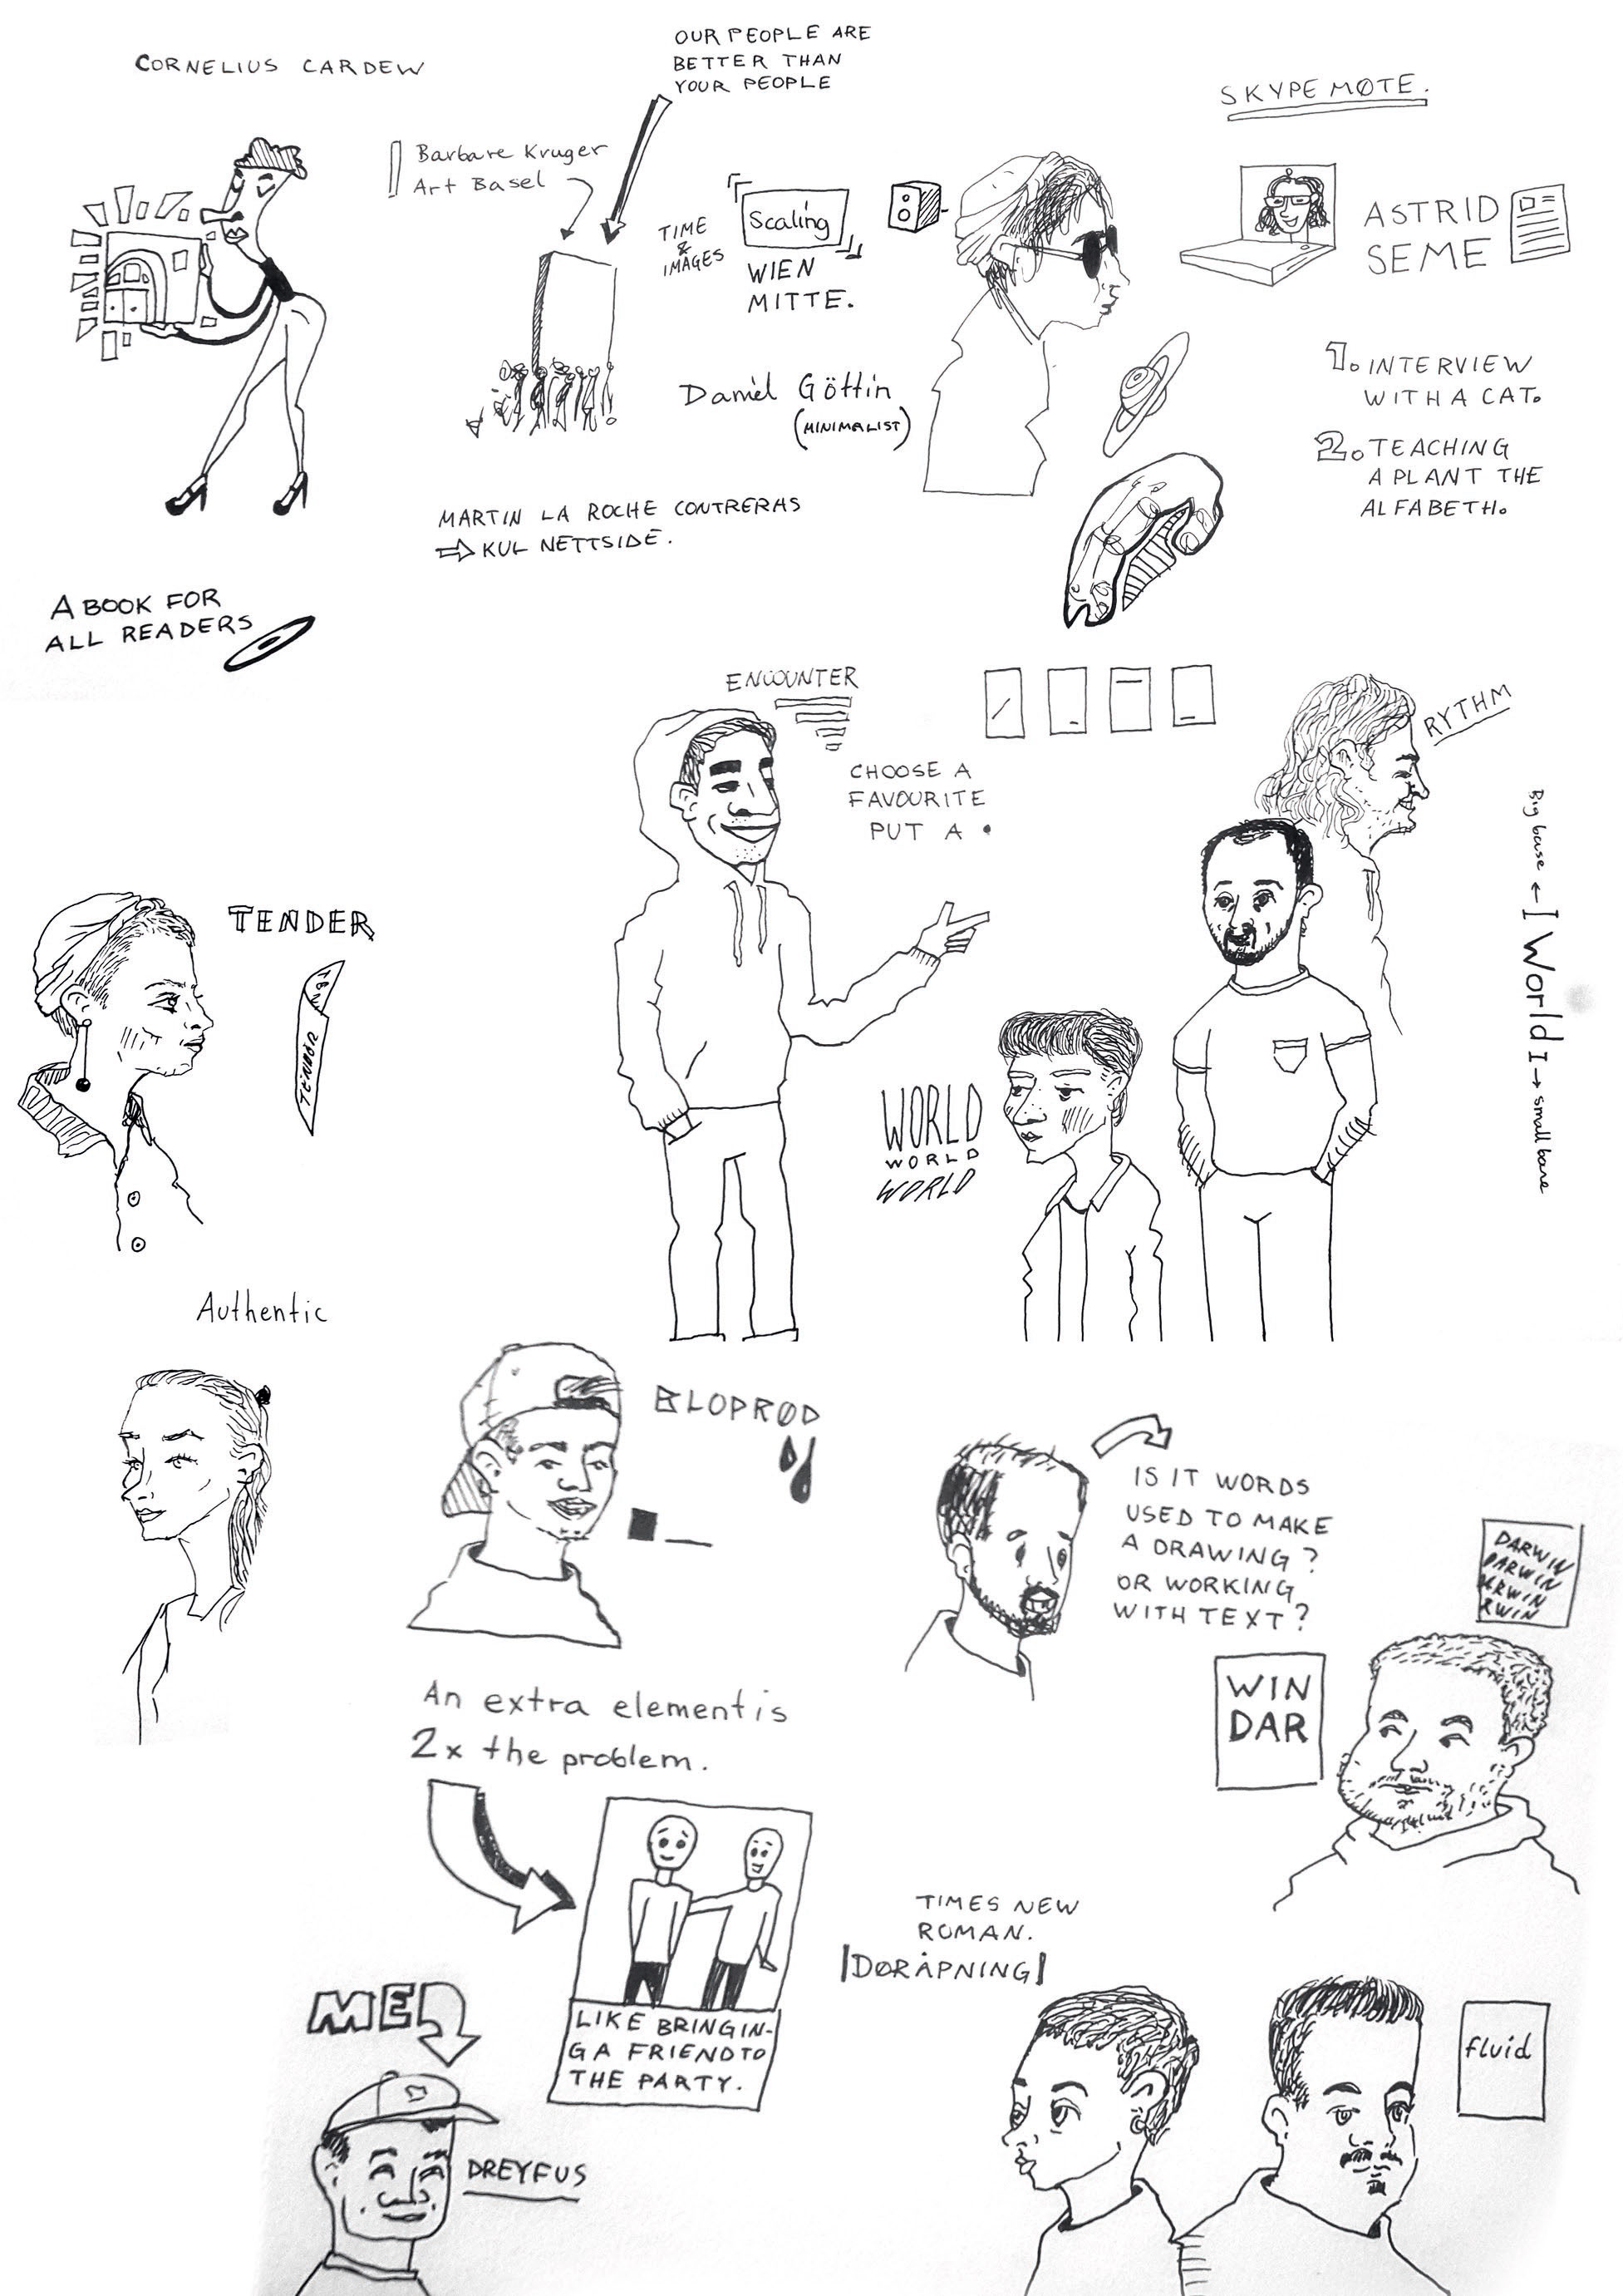 CORNELIUS CARDEW
OUR PEOPLE ARE
BETTER THAN
YOUR PEOPLE
SKYPE MØTE.
Barbare Kruger
Art Basel
TIME
&
IMAGES
Scaling
WIEN
MITTE.
ASTRID
SEME
Daniel Göttin
(MINIMALIST)
1. INTERVIEW
WITH A CAT.
2. TEACHING
A PLANT THE
ALFABETH.
MARTIN LA ROCHE CONTRERAS
⇒ KUL NETTSIDE.
A BOOK FOR
ALL READERS
ENCOUNTER
CHOOSE A
FAVOURITE
PUT A •
RYTHM
Big base ← I World I → small base
TENDER
TENDER
WORLD
WORLD
WORLD
Authentic
BLOPRØD
IS IT WORDS
USED TO MAKE
A DRAWING?
OR WORKING
WITH TEXT?
DARWIN
DARWIN
ARWIN
RWIN
WIN
DAR
An extra element is
2x the problem.
LIKE BRINGIN-
G A FRIEND TO
THE PARTY.
TIMES NEW
ROMAN.
|DØRÅPNING|
ME
DREYFUS
fluid